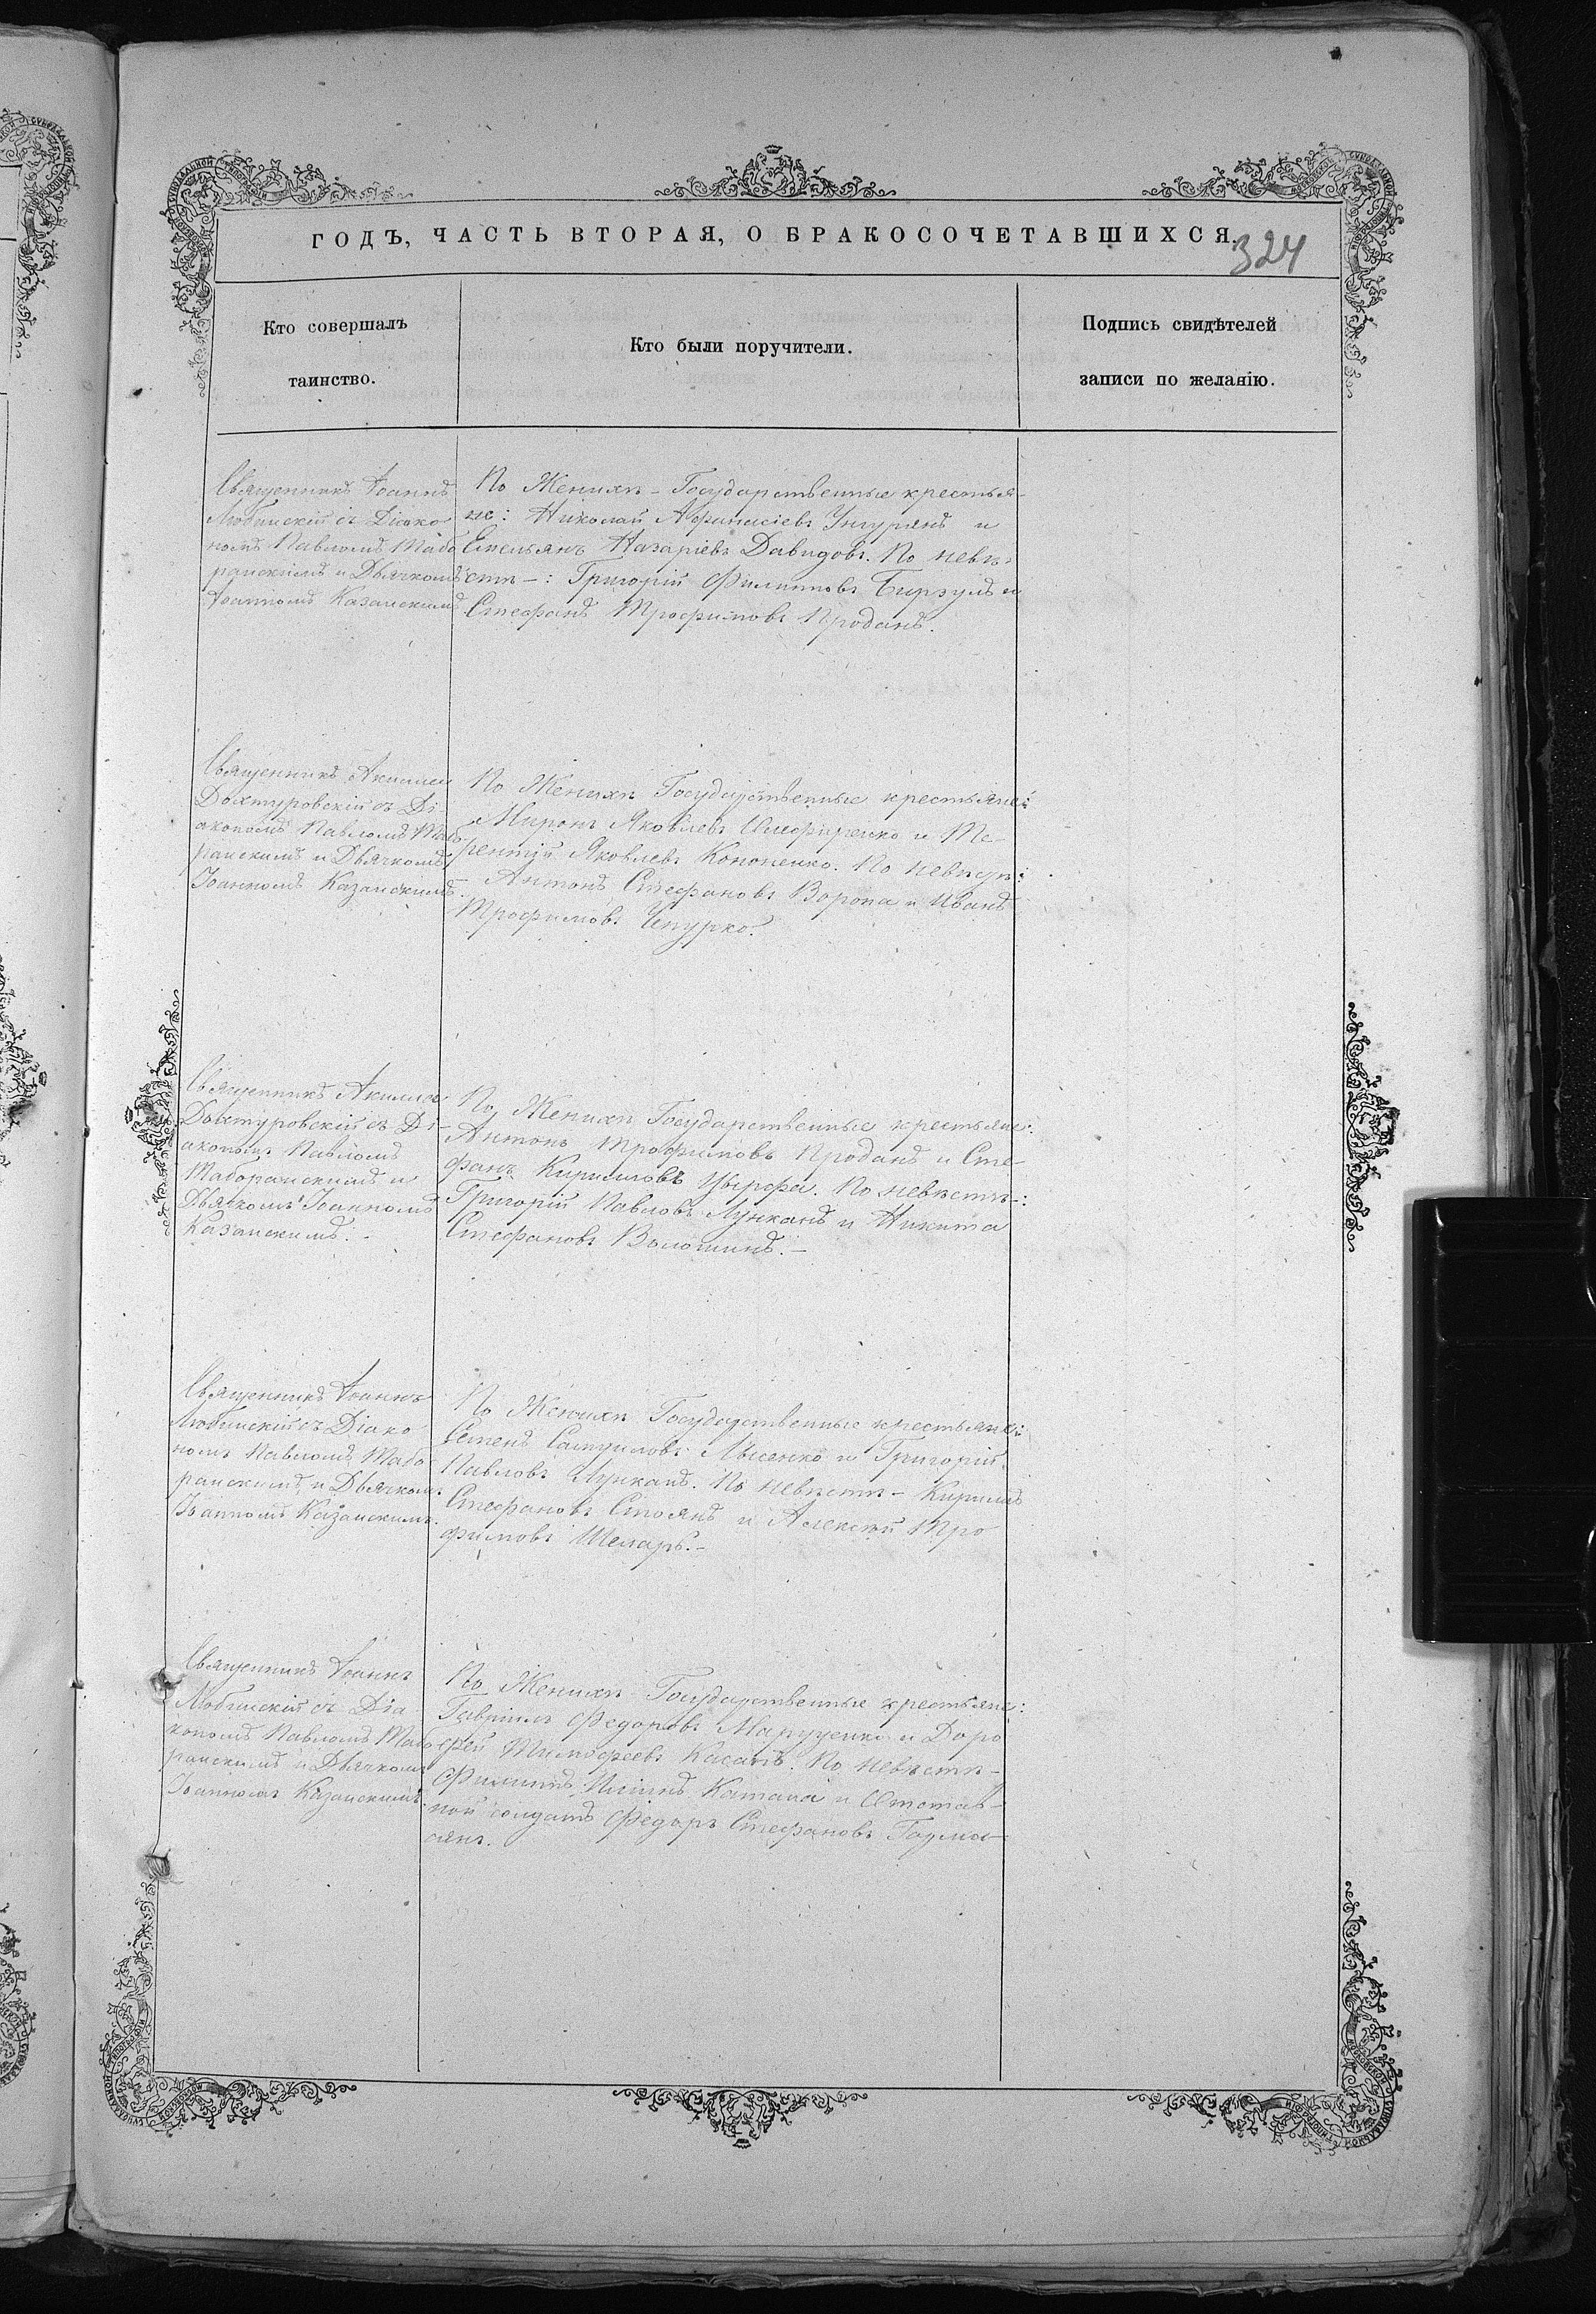 ГОДЪ, ЧАСТЬ ВТОРАЯ, О БРАКОСОЧЕТАВШИХСЯ.
324
Кто совершалъ
таинство.
Кто были поручители.
Подпись свидѣтелей
записи по желанію.
Священникъ Іоаннъ
Любинскій съ Діако
номъ Павломъ Табо
ранскимъ и Дьячкомъ
Іоанномъ Казанскимъ
По Женихѣ - Государственные крестья-
не: Николай Афанасіевъ Унгурянъ и
Емельянъ Назаріевъ Давидовъ. По невѣ-
стѣ -: Григорій Филипповъ Бирзулъ и
Стефанъ Трофимовъ Проданъ.
Священникъ Акилла
Дохтуровскій съ Ді-
акономъ Павломъ Табо
ранскимъ и Дьячкомъ
Іоанномъ Казанскимъ.
По Женихѣ Государственные крестьяне:
Миронъ Яковлевъ и Те-
рентій Яковлевъ Кононенко. По невѣстѣ:
Антонъ Стефановъ Ворона и Иванъ
Трофимовъ Чепурко.
Священникъ Акилла
Дохтуровскій съ Ді-
акономъ Павломъ
Таборанскимъ и
Дьячкомъ Іоанномъ
Казанскимъ. -
По Женихѣ Государственные крестьяне:
Антонъ Трофимовъ Проданъ и Сте-
фанъ Кирилловъ Цырфа. По невѣстѣ -:
Григорій Павловъ Лунканъ и Никита
Стефановъ Волошинъ. -
Священникъ Іоаннъ
Любинскій съ Діако
номъ Павломъ Табо
ранскимъ и Дьячкомъ
Іоанномъ Казанскимъ.
По Женихѣ Государственные крестьяне:
Семенъ Самуиловъ Лысенко и Григорій
Павловъ Лунканъ. По невѣстѣ - Кириллъ
Стефановъ Стоянъ и Алексѣй Тро
фимовъ Шеларь. -
Священникъ Іоаннъ
Любинскій съ Діа
кономъ Павломъ Табо
ранскимъ и Дьячкомъ
Іоанномъ Казанскимъ.
По Женихѣ - Государственные крестьяне:
Гавріилъ Федоровъ Марущенко и Доро
фей Тимофеевъ Касапъ. По невѣстѣ -
Филиппъ Катана и Отстав-
ной солдатъ Федоръ Стефановъ